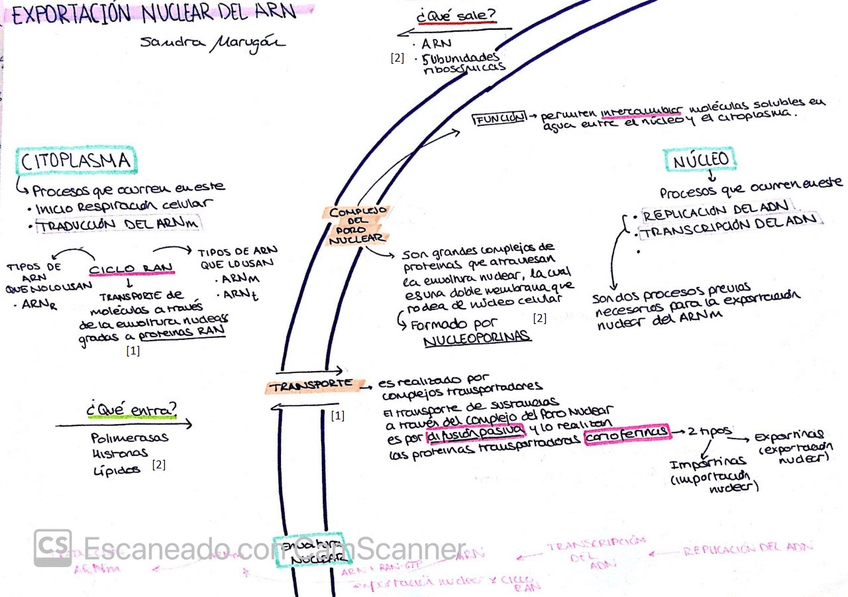 EXPORTACIÓN NUCLEAR DEL ARN
Sandra Marugán
¿Qué sale?
· ARN
[2] · Subunidades
ribosómicas
FUNCIÓN → permiten intercambiar moléculas solubles en
agua entre el núcleo y el citoplasma.
CITOPLASMA
Procesos que ocurren en este
· Inicio Respiración celular
· TRADUCCIÓN DEL ARNm
TIPOS DE
ARN
QUE NO LO USAN
· ARNR
CICLO RAN
TRANSPORTE de
moléculas a través
de la envoltura nuclear
gracias a proteínas RAN
[1]
TIPOS DE ARN
QUE LO USAN
· ARNm
· ARNt
COMPLEJO
DEL
PORO
NUCLEAR
Son grandes complejos de
proteínas que atraviesan
la envoltura nuclear, la cual
es una doble membrana que
rodea de núcleo celular
[2]
Formado por
NUCLEOPORINAS
NÚCLEO
Procesos que ocurren en este
· REPLICACIÓN DEL ADN
· TRANSCRIPCIÓN DEL ADN
·
Son dos procesos previos
necesarios para la exportación
nuclear del ARNm
TRANSPORTE → es realizado por
complejos transportadores
[1]
El transporte de sustancias
a través del Complejo del Poro Nuclear
es por difusión pasiva y lo realizan
las proteínas transportadoras carioferinas → 2 tipos
Exportinas
(exportación
nuclear)
Importinas
(importación
nuclear)
¿Qué entra?
Polimerasas
Histonas
Lípidos [2]
Envoltura
NUCLEAR
CS Escaneado con CamScanner
ARNm
ARN + RAN-GTP
exportación nuclear y ciclo
RAN
ARN
TRANSCRIPCIÓN
DEL
ADN
REPLICACIÓN DEL ADN